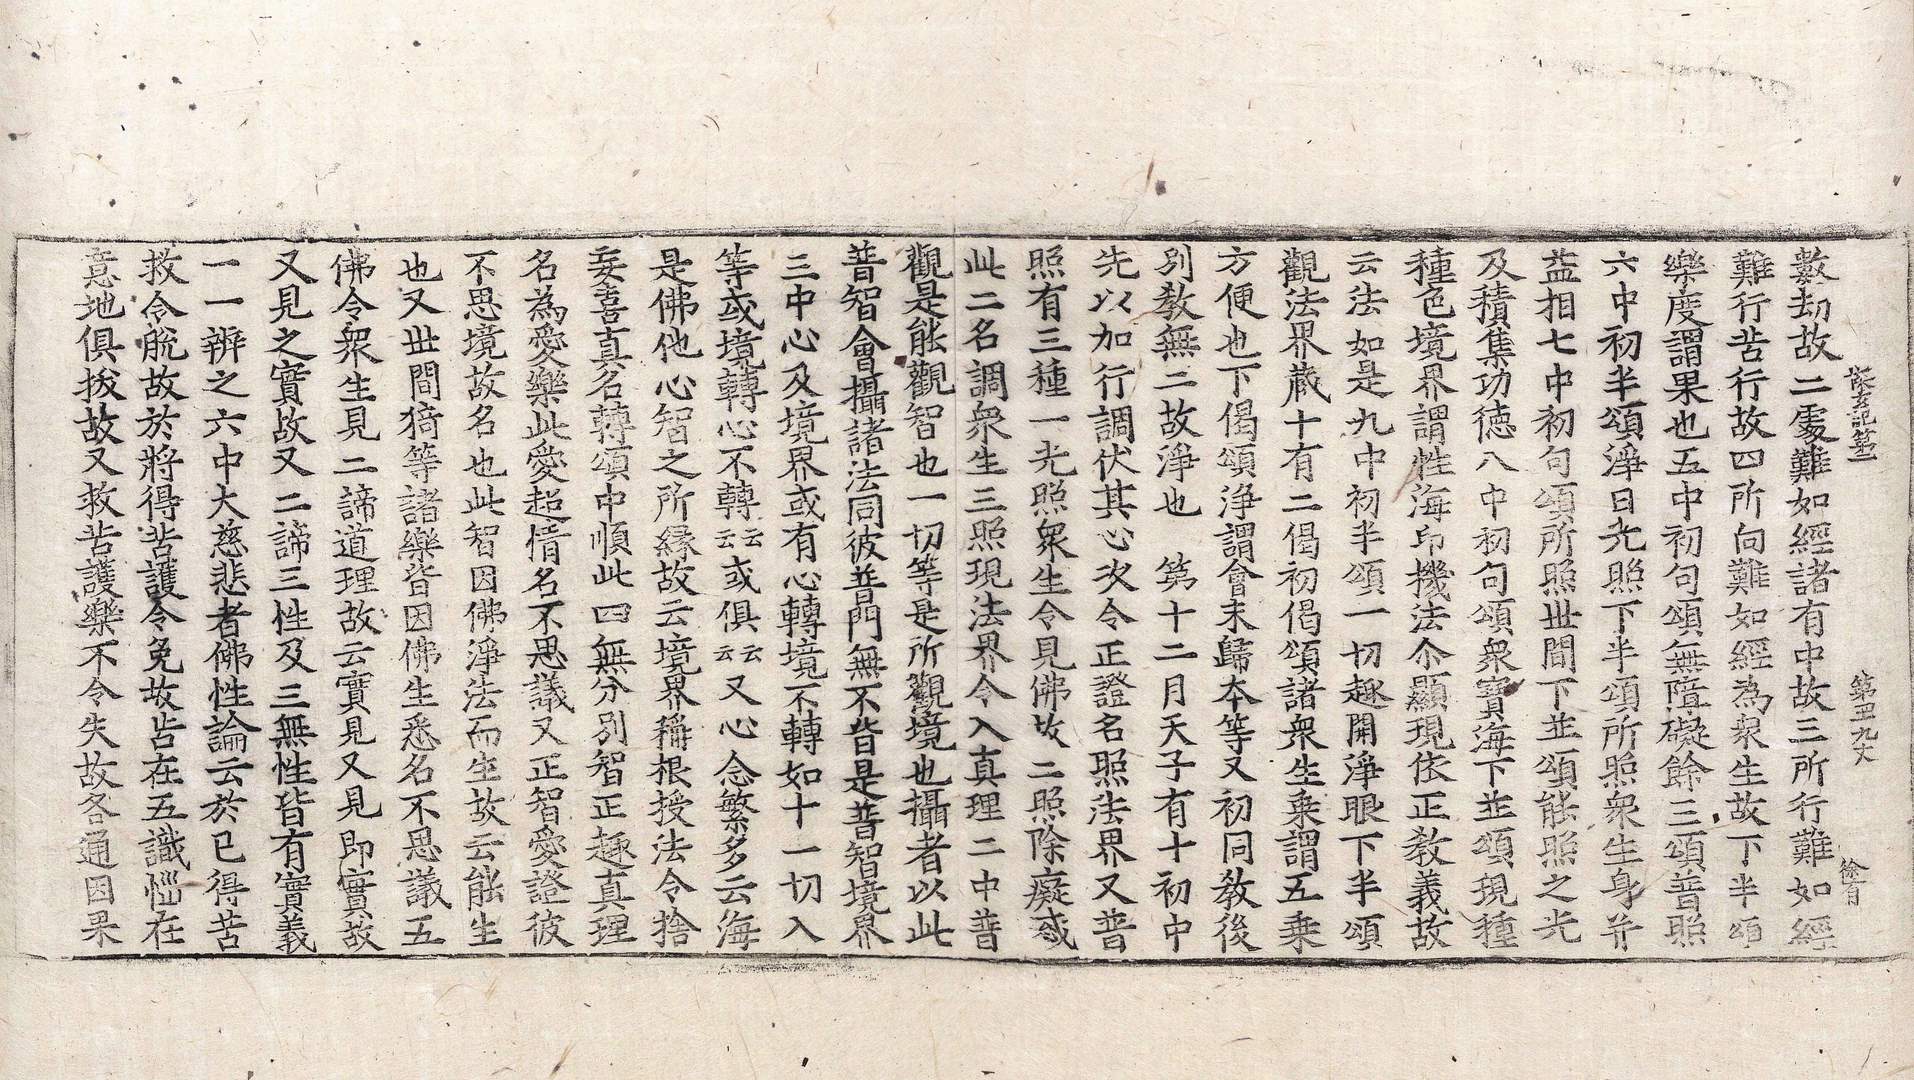 數劫故二處難如經諸有中故三所行難如經
難行苦行故四所向難如經為衆生故下半頌
樂度謂果也五中初句頌無障礙餘三頌普照
六中初半頌淨日光照下半頌所照衆生身并
益相七中初句頌所照世間下並頌能照之光
及積集功德八中初句頌衆寶海下並頌現種
種色境界謂性海印機法尒顯現依正教義故
云法如是九中初半頌一切趣開淨眼下半頌
觀法界蔵十有二偈初偈頌諸衆生乗謂五乗
方便也下偈頌淨謂會末歸本等又初同教後
別教無二故淨也　第十二月天子有十初中
先以加行調伏其心次令正證名照法界又普
照有三種一光照衆生令見佛故二照除癡惑
此二名調衆生三照現法界令入真理二中普
觀是能觀智也一切等是所觀境也攝者以此
普智會攝諸法同彼普門無不皆是普智境界
三中心及境界或有心轉境不轉如十一切入
等或境轉心不轉云云或俱云云又心念繁多云海
是佛他心智之所縁故云境界稱根授法令捨
妄喜真名轉頌中順此四無分別智正趣真理
名為愛樂此愛超情名不思議又正智愛證彼
不思境故名也此智因佛淨法而生故云能生
也又世間猗等諸樂皆因佛生悉名不思議五
佛令衆生見二諦道理故云實見又見即實故
又見之實故又二諦三性及三無性皆有實義
一一辨之六中大慈悲者佛性論云於已得苦
救令脫故於將得苦護令免故苦在五識惱在
意地俱拔故又救苦護樂不令失故各通因果